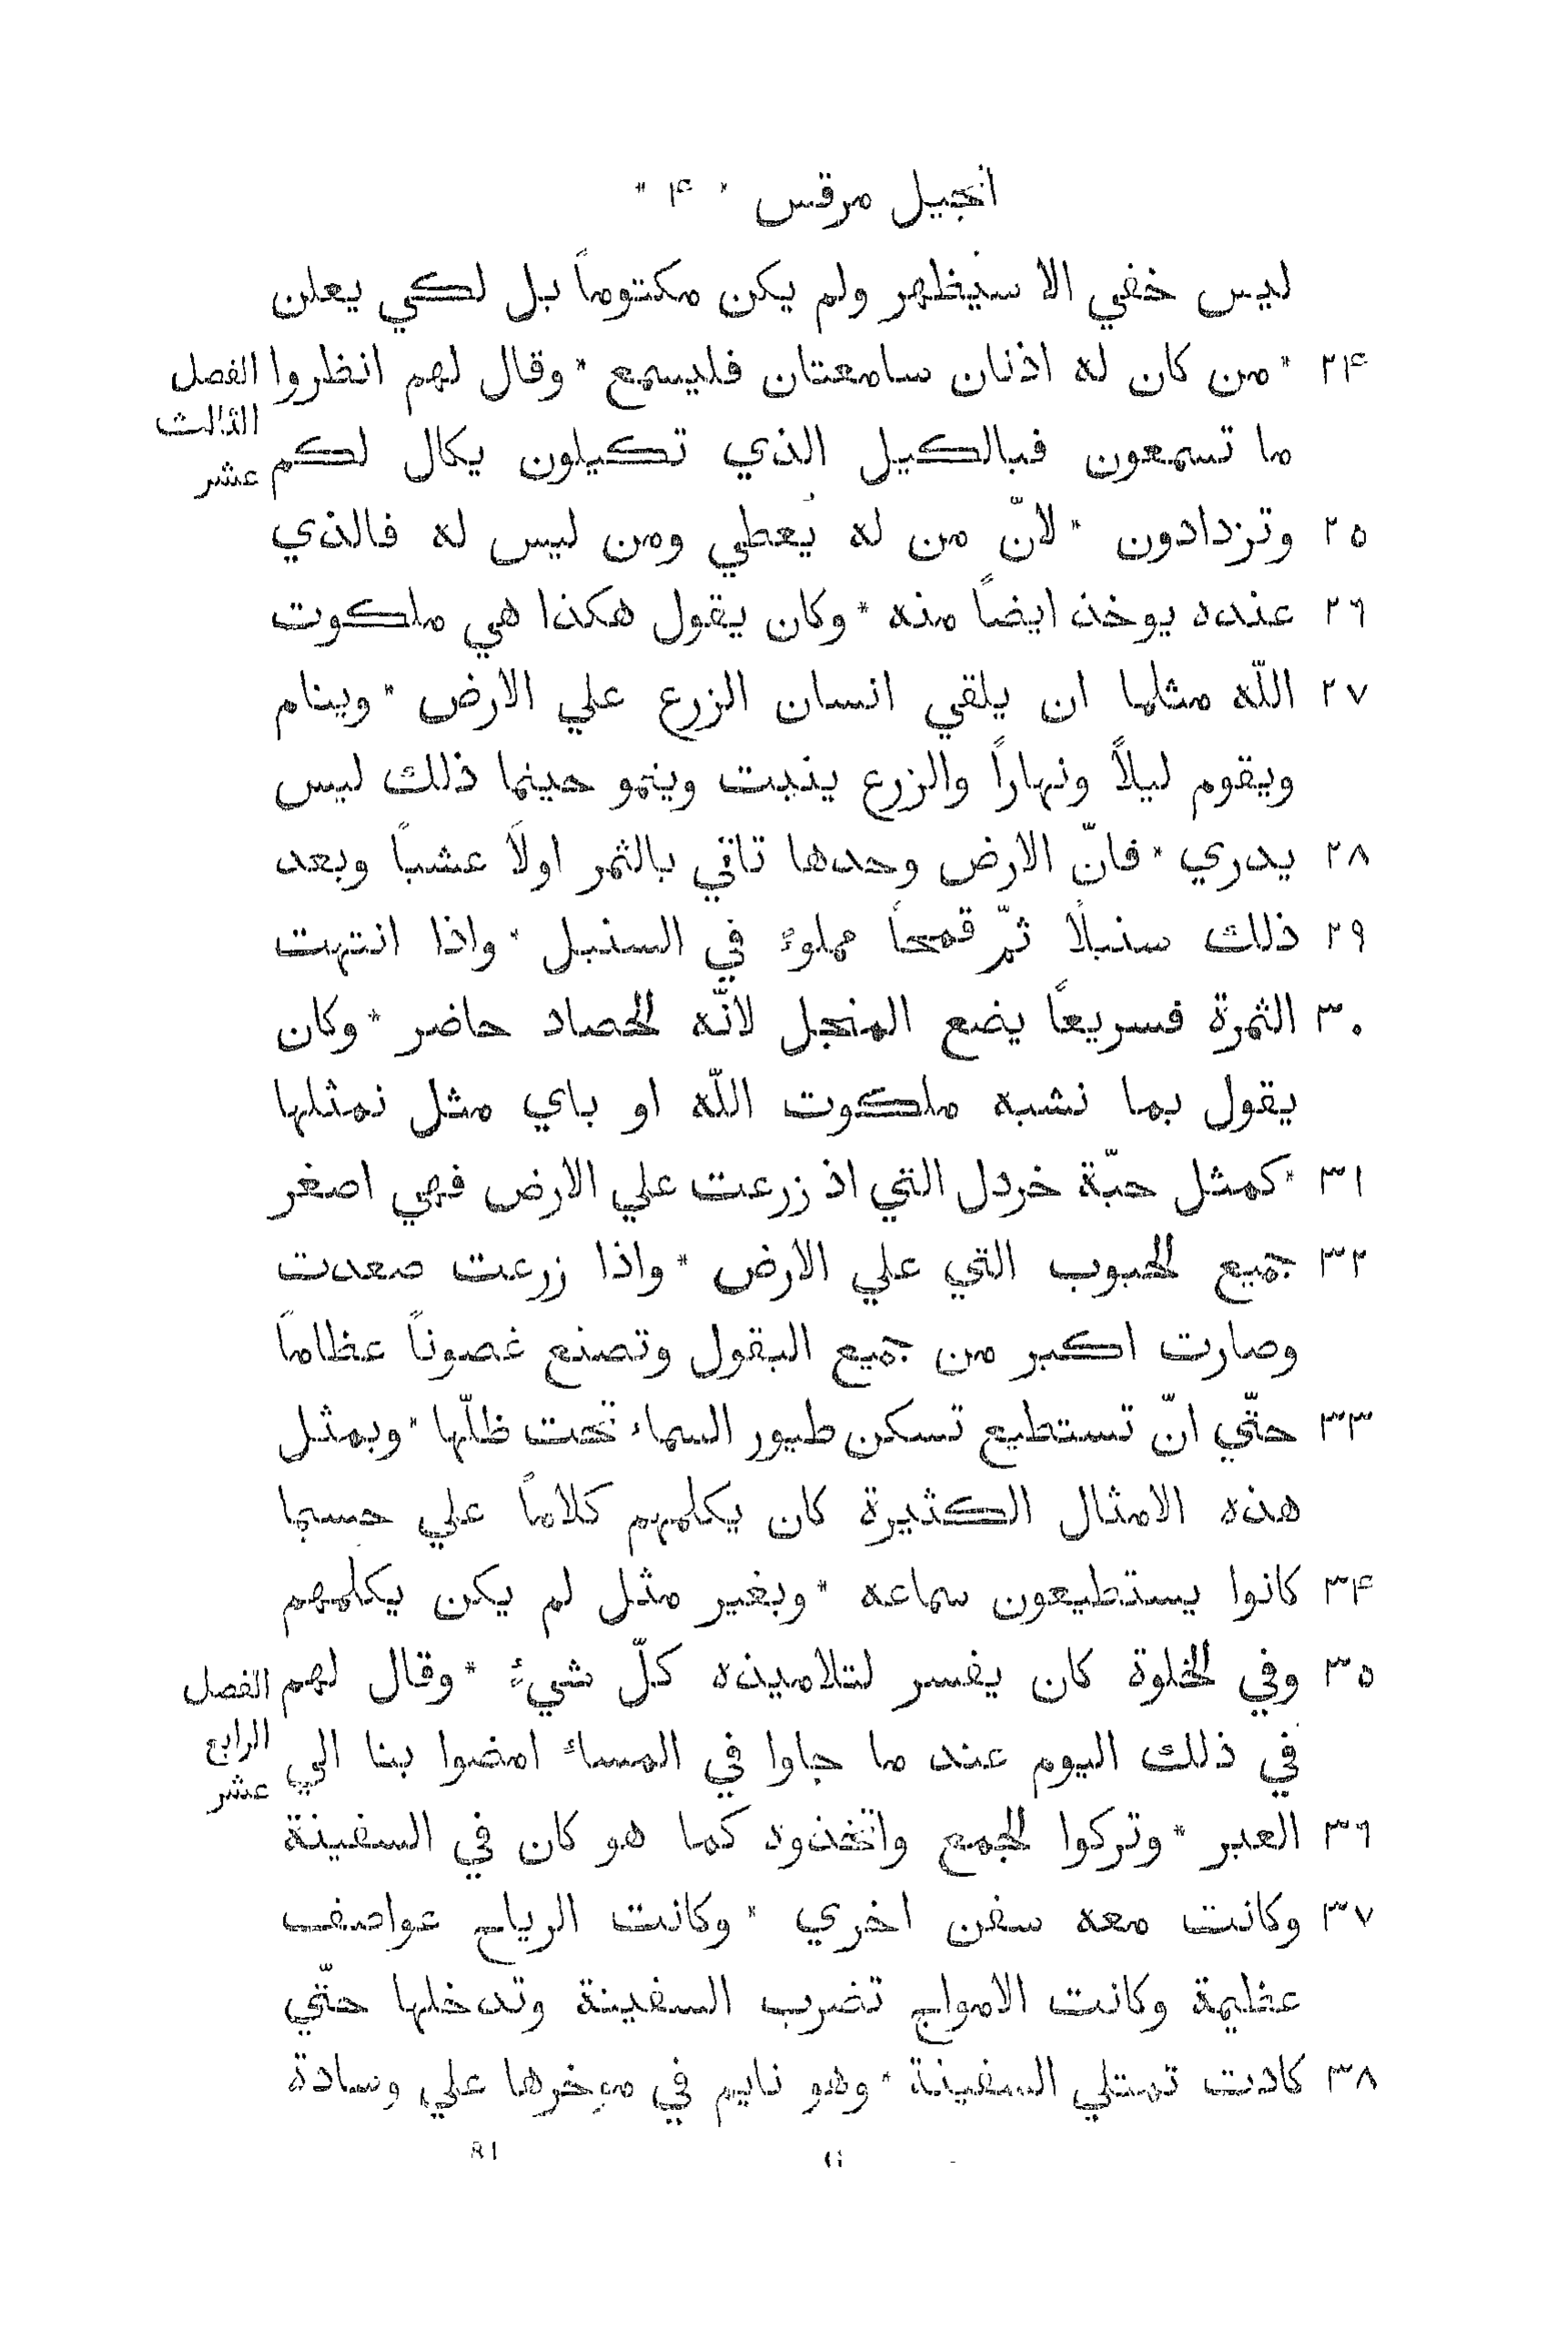 انجيل مرقس * ۴ *
ليس خفي الا سيُظهر ولم يكن مكتوماً بل لكي يعلن
۲۴ * من كان له اذنان سامعتان فليسمع * وقال لهم انظروا الفصل الثالث عشر
ما تسمعون فبالكيل الذي تكيلون يكال لكم
۲٥ وتزدادون * لانّ من له يُعطي ومن ليس له فالذي
۲٦ عنده يوخذ ايضاً منه * وكان يقول هكذا هي ملكوت
۲٧ اللّه مثلما ان يلقي انسان الزرع علي الارض * وينام
ويقوم ليلاً ونهاراً والزرع ينبت وينمو حينما ذلك ليس
۲٨ يدري * فانّ الارض وحدها تاتي بالثمر اولاً عشباً وبعد
۲٩ ذلك سنبلاً ثمّ قمحاً مملوءً في السنبل * واذا انتهت
۳۰ الثمرة فسريعاً يضع المنجل لانّه الحصاد حاضر * وكان
يقول بما نشبه ملكوت اللّه او باي مثل نمثلها
۳۱ * كمثل حبّة خردل التي اذ زرعت علي الارض فهي اصغر
۳۲ جميع الحبوب التي علي الارض * واذا زرعت صعدت
وصارت اكبر من جميع البقول وتصنع غصوناً عظاماً
۳۳ حتّي انّ تستطيع تسكن طيور السماء تحت ظلّها * وبمثل
هذه الامثال الكثيرة كان يكلمهم كلاماً علي حسبما
۳۴ كانوا يستطيعون سماعه * وبغير مثل لم يكن يكلمهم
۳٥ وفي الخلوة كان يفسر لتلاميذه كلّ شيءٍ * وقال لهم الفصل الرابع عشر
في ذلك اليوم عند ما جاوا في المساء امضوا بنا الي
۳٦ العبر * وتركوا الجمع واتّخذوه كما هو كان في السفينة
۳٧ وكانت معه سفن اخري * وكانت الرياح عواصف
عظيمة وكانت الامواج تضرب السفينة وتدخلها حتّي
۳٨ كادت تمتلي السفينة * وهو نايم في موخرها علي وسادة
81 G